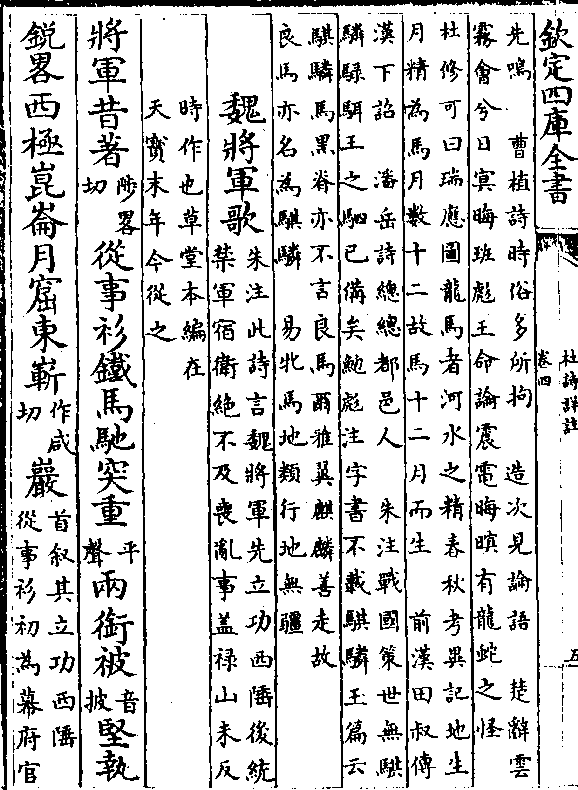 欽定四庫全書
杜詩詳註
卷四
五
先鳴　曹植詩時俗多所拘　造次見論語　楚辭雲
霧會兮日冥晦班彪王命論震電晦暝有龍蛇之怪
杜修可曰瑞應圖龍馬者河水之精春秋考異記地生
月精為馬月數十二故馬十二月而生　前漢田叔傳
漢下詔　潘岳詩總總都邑人　朱注戰國策世無騏
驎騄駬王之駟已備矣鮑彪注字書不載騏驎玉篇云
騏驎馬黑脊亦不言良馬爾雅翼麒麟善走故
良馬亦名為騏驎　易牝馬地類行地無疆
魏將軍歌 朱注此詩言魏將軍先立功西陲後統
禁軍宿衛絶不及喪亂事盖禄山未反
時作也草堂本編在
天寳末年今從之
將軍昔著陟畧切從事衫鐵馬馳突重平聲兩銜被音披堅執
銳畧西極崑崙月窟東嶄作咸切巖首叙其立功西陲從事衫初為幕府官